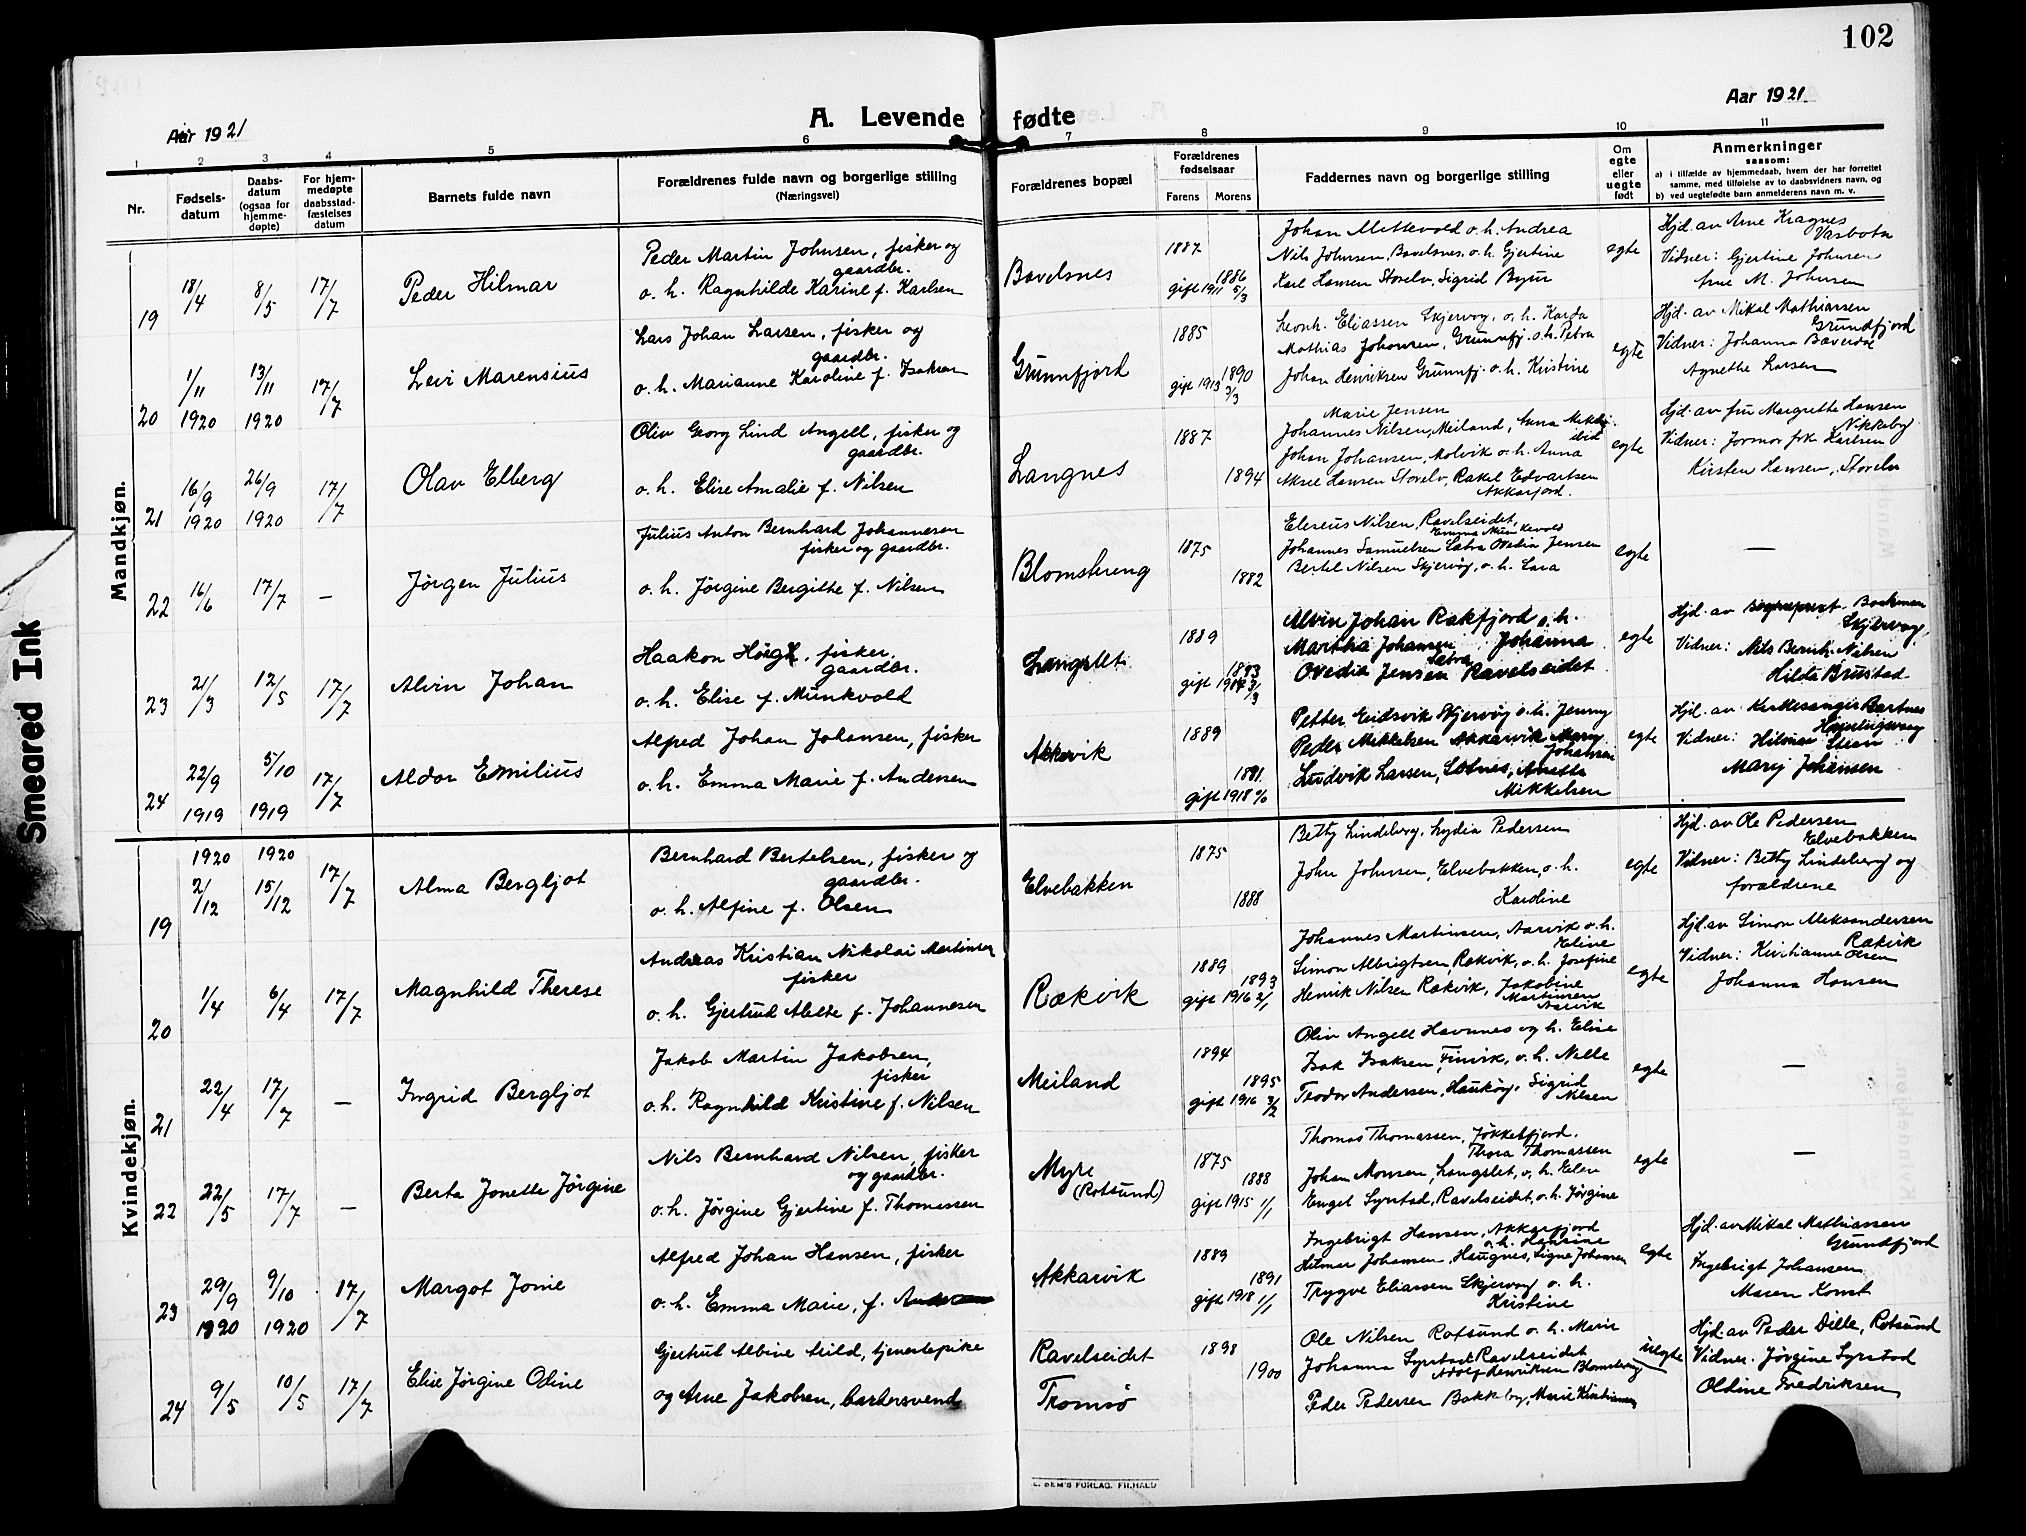 102
Aar 1921
A. Levende fødte
Aar 1921
1 2 3 4 5 6 7 8 9 10 11
Nr.
Fødsels-
datum
Daabs-
datum
(ogsaa for
hjemme-
døpte)
For hjem-
medøpte
daabsstad-
fæstelses
datum
Barnets fulde navn
Forældrenes fulde navn og borgerlige stilling
(Næringsvei)
Forældrenes bopæl
Forældrenes
fødselsaar
Farens Morens
Faddernes navn og borgerlige stilling
Om
egte
eller
uegte
født
Anmerkninger
saasom:
a) i tilfælde av hjemmedaab, hvem der har forrettet
samme, med tilføielse av to daabsvidners navn, og
b) ved uegtefødte barn anmelderens navn m. v.
Mandkjøn.
19 18/4 8/5 17/7 Peder Hilmar
Peder Martin Johnsen, fisker og
gaardbr.
o. h. Ragnhilde Karine f. Karlsen
Bavelsnes
1887
1886
gift 1911 5/3
Johan Mettevold o. h. Andrea
Nils Johnsen, Bavelsnes, o. h. Gjertine
Karl Hansen Storelv, Sigrid
egte
Hjd. av Arne Kragnes
Vasbotn
Vidner: Gjertine Johnsen
Arne M. Johnsen
20 1/11 1920 13/11 1920 17/7 Leir Marensius
Lars Johan Larsen, fisker og
gaardbr.
o. h. Marianne Karoline f. Isaksen
Grunnfjord
1885
1890
gift 1913 3/3
Leonh. Eliassen Skjervøy, o. h. Karda
Mathias Johansen, Grunnfj. o. h. Petra
Johan Henriksen Grunnfj. o. h. Kristine
egte
Hjd. av Mikal Mathiassen
Grundfjord
Vidner: Johanna
Agnethe Larsen
21 16/9 1920 26/9 1920 17/7 Olav Elberg
Oliv Georg Lind Angell, fisker og
gaardbr.
o. h. Elise Amalie f. Nilsen
Langnes
1887
1894
Marie Jensen
Johannes Nilsen, Meiland, Anna
ibid
Johan Johansen, Molvik o. h. Anna
Aksel Hansen Storelv, Rakel Edvartsen
Akkarfjord.
egte
Hjd. av fru Margrethe Hansen
Nikkeby
Vidner: Jormor frk Karlsen
Kirsten Hansen, Storelv
22 16/6 17/7 – Jørgen Julius
Julius Anton Bernhard Johannesen
fisker og gaardbr.
o. h. Jørgine Bergitte f. Nilsen
Blomstereng
1875
1882
Eleseus Nilsen, Ravelseidet,
Emma Munkevold
Johannes Samuelsen Sætra Ovedia Jensen
Bertel Nilsen Skjervøy, o. h. Lara
egte
—
23 21/3 12/5 17/7 Alvin Johan
Haakon Høigh, fisker,
gaardbr.
o. h. Elise f. Munkvold
Langslet
1889
1893
gift 1914 3/3
Alvin Johan Rakfjord o. h.
Martha Johansen Johanna
Sætra
Ovedia Jensen Ravelseidet
egte
Hjd. av sogneprest Backman
Skjervøy,
Vidner: Nils Bernh. Nilsen
Hilda Brustad
24 22/9 1919 5/10 1919 17/7 Aldor Emilius
Alfred Johan Johansen, fisker
o. h. Emma Marie f. Andersen
Akkarvik
1889
1891
gift 1918
Petter Eidsvik Skjervøy o. h. Jenny
Peder Mikkelsen Akkarvik Marij
Johansen
Ludvik Larsen, Lotnes, Anette
Mikkelsen
egte
Hjd. av Kirkesanger Bartnes
Honningsvaag
Vidner: Hilmar Steen
Marij Johansen
Kvindekjøn.
19 1920 2/12 1920 15/12 17/7 Alma Bergljot
Bernhard Bertelsen, fisker og
gaardbr.
o. h. Alfine f. Olsen
Elvebakken
1875
1888
Betty Lindeberg, Lydia Pedersen
John Johnsen, Elvebakken, o. h.
Karoline
egte
Hjd. av Ole Pedersen
Elvebakken
Vidner: Betty Lindeberg og
forældrene
20 1/4 6/4 17/7 Magnhild Therese
Andreas Kristian Nikolai Martinsen
fisker
o. h. Gjertrud Alette f. Johannesen
Rækvik
1889
1893
gift 1916 2/1
Johannes Martinsen, Aarvik o. h.
Eline
Simon Albrigtsen, Rakvik, o. h. Josefine
Henrik Nilsen Rakvik, Jakobine
Martinsen
Aarvik
egte
Hjd. av Simon Aleksandersen
Rækvik
Vidner: Kristianne Olsen
Johanna Hansen
21 22/4 17/7 – Ingrid Bergljot
Jakob Martin Jakobsen,
fisker
o. h. Ragnhild Kristine f. Nilsen
Meiland
1894
1895
gift 1916 3/2
Oliv Angell Havnnes og h. Elise
Isak Isaksen, Finvik, o. h. Nelle
Teodor Andersen, Haukøy, Sigrid
Nilsen
egte
—
22 22/5 17/7 – Berta Jonette Jørgine
Nils Bernhard Nilsen, fisker
og gaardbr.
o. h. Jørgine Gjertine f. Thomassen
Myre
(Rotsund)
1875
1888
gift 1915 1/1
Thomas Thomassen, Jøkkelfjord.
Thora Thomassen
Johan Monsen, Langslet, o. h. Elen
Enget Lyrstad, Ravelseidet, o. h. Jørgine
egte
—
23 29/9 1920 9/10 1920 17/7 Margot Jonie
Alfred Johan Hansen, fisker
o. h. Emma Marie, f.
Akkarvik
1889
1891
gift 1918 1/1
Ingebrigt Hansen, Akkarfjord
o. h. Hansine
Hilmar Johansen, Haugnes, Signe Johansen
Trygve Eliassen Skjervøy o. h.
Kristine
egte
Hjd. av Mikal Mathiassen
Grundfjord
Ingebrigt Johansen
Maren Konst
24 9/5 10/5 17/7 Elise Jørgine Odine
Gjertrud Albine Arild, tjenestepike
og Arne Jakobsen, barbersvend
Ravelseidet
Tromsø
1898
1900
Ole Nilsen Rotsund o. h. Marie
Johanna Lyrstad Ravelseidet
Adolf Henriksen Blomstereng
Peder Pedersen Bakkeby, Marie Kristiansen
uegte
Hjd. av Peder Dille, Rotsund
Vidner. Jørgine Lyrstad
Oldine Fredriksen
SEM'S FORLAG. FR.HALD
Smeared Ink